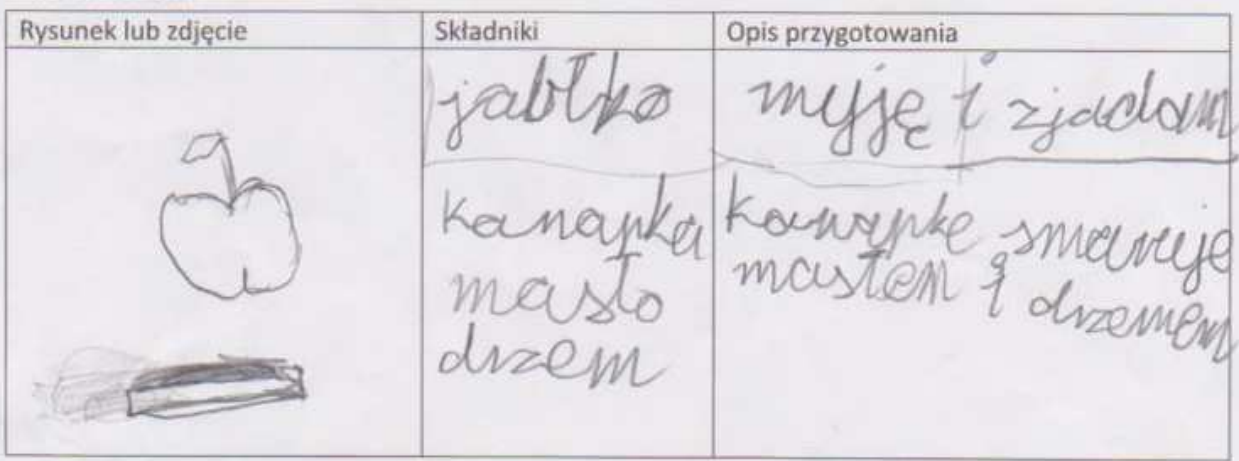 Rysunek lub zdjęcie
Składniki
Opis przygotowania
jabłko
myję i zjadam
kanapka
masło
drzem
kanapke smaruje
masłem i drzemem